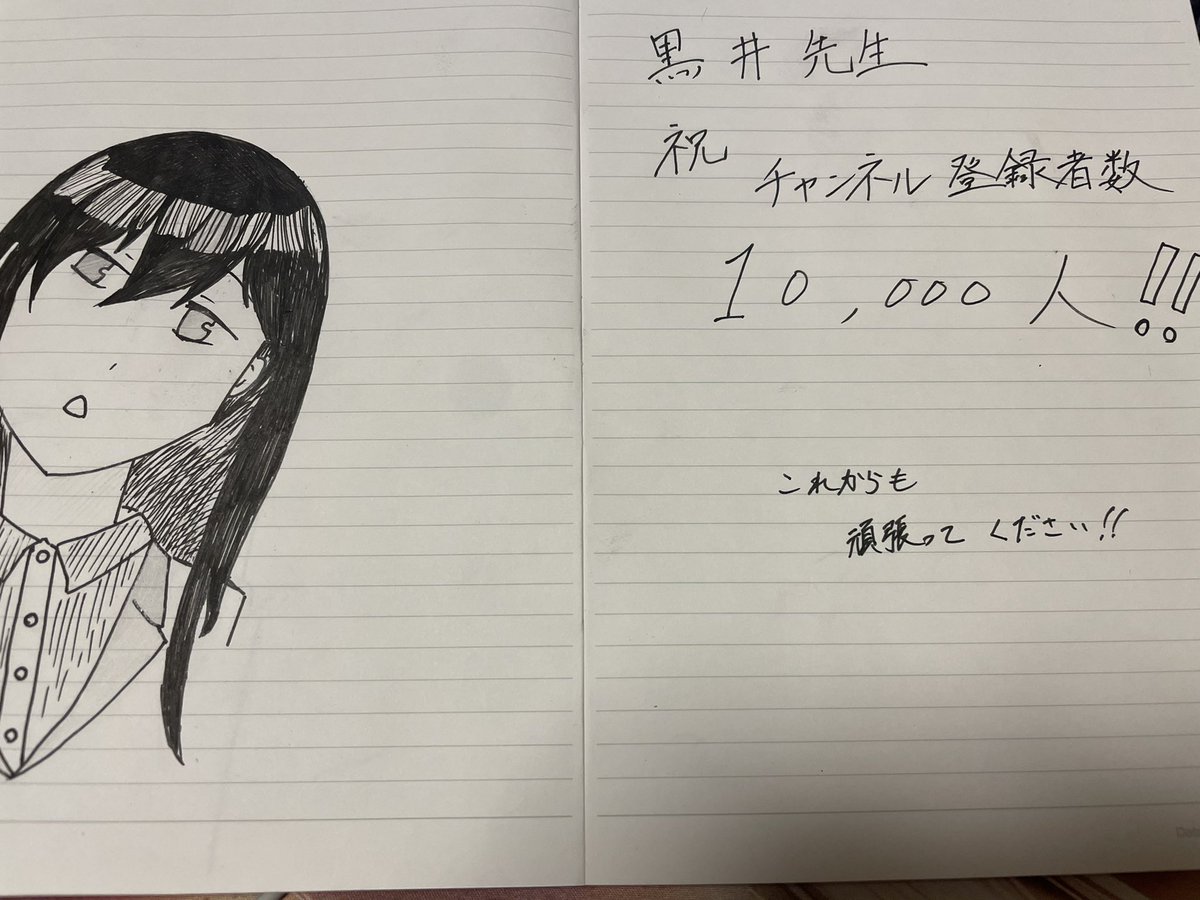 黒井先生
祝
チャンネル登録者数
10,000人!!
これからも
頑張ってください!!